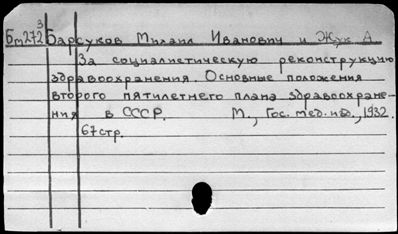 Бт272³ Барсуков Михаил Иванович и Жук А
За социалистическую реконструкцию
здравоохранения. Основные положения
второго пятилетнего плана здравоохране-
ния в СССР. М., Гос. мед. изд., 1932.
67 стр.